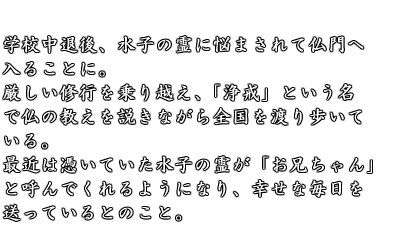 学校中退後、水子の霊に悩まされて仏門へ
入ることに。
厳しい修行を乗り越え、「浄戒」という名
で仏の教えを説きながら全国を渡り歩いて
いる。
最近は憑いていた水子の霊が「お兄ちゃん」
と呼んでくれるようになり、幸せな毎日を
送っているとのこと。